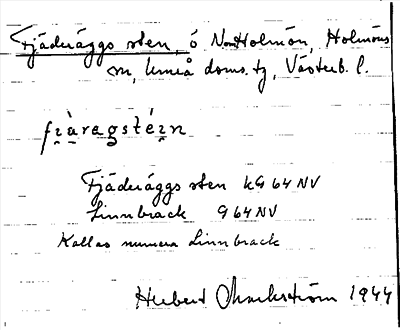 Fjäderäggs sten, ö Norr Holmön, Holmöns
sn, Umeå doms. tg, Västerb. l.
Fjäderäggs sten kG 64 NV
Linnbrack G 64 NV
Kallas numera Linnbrack
Herbert Markström 1944